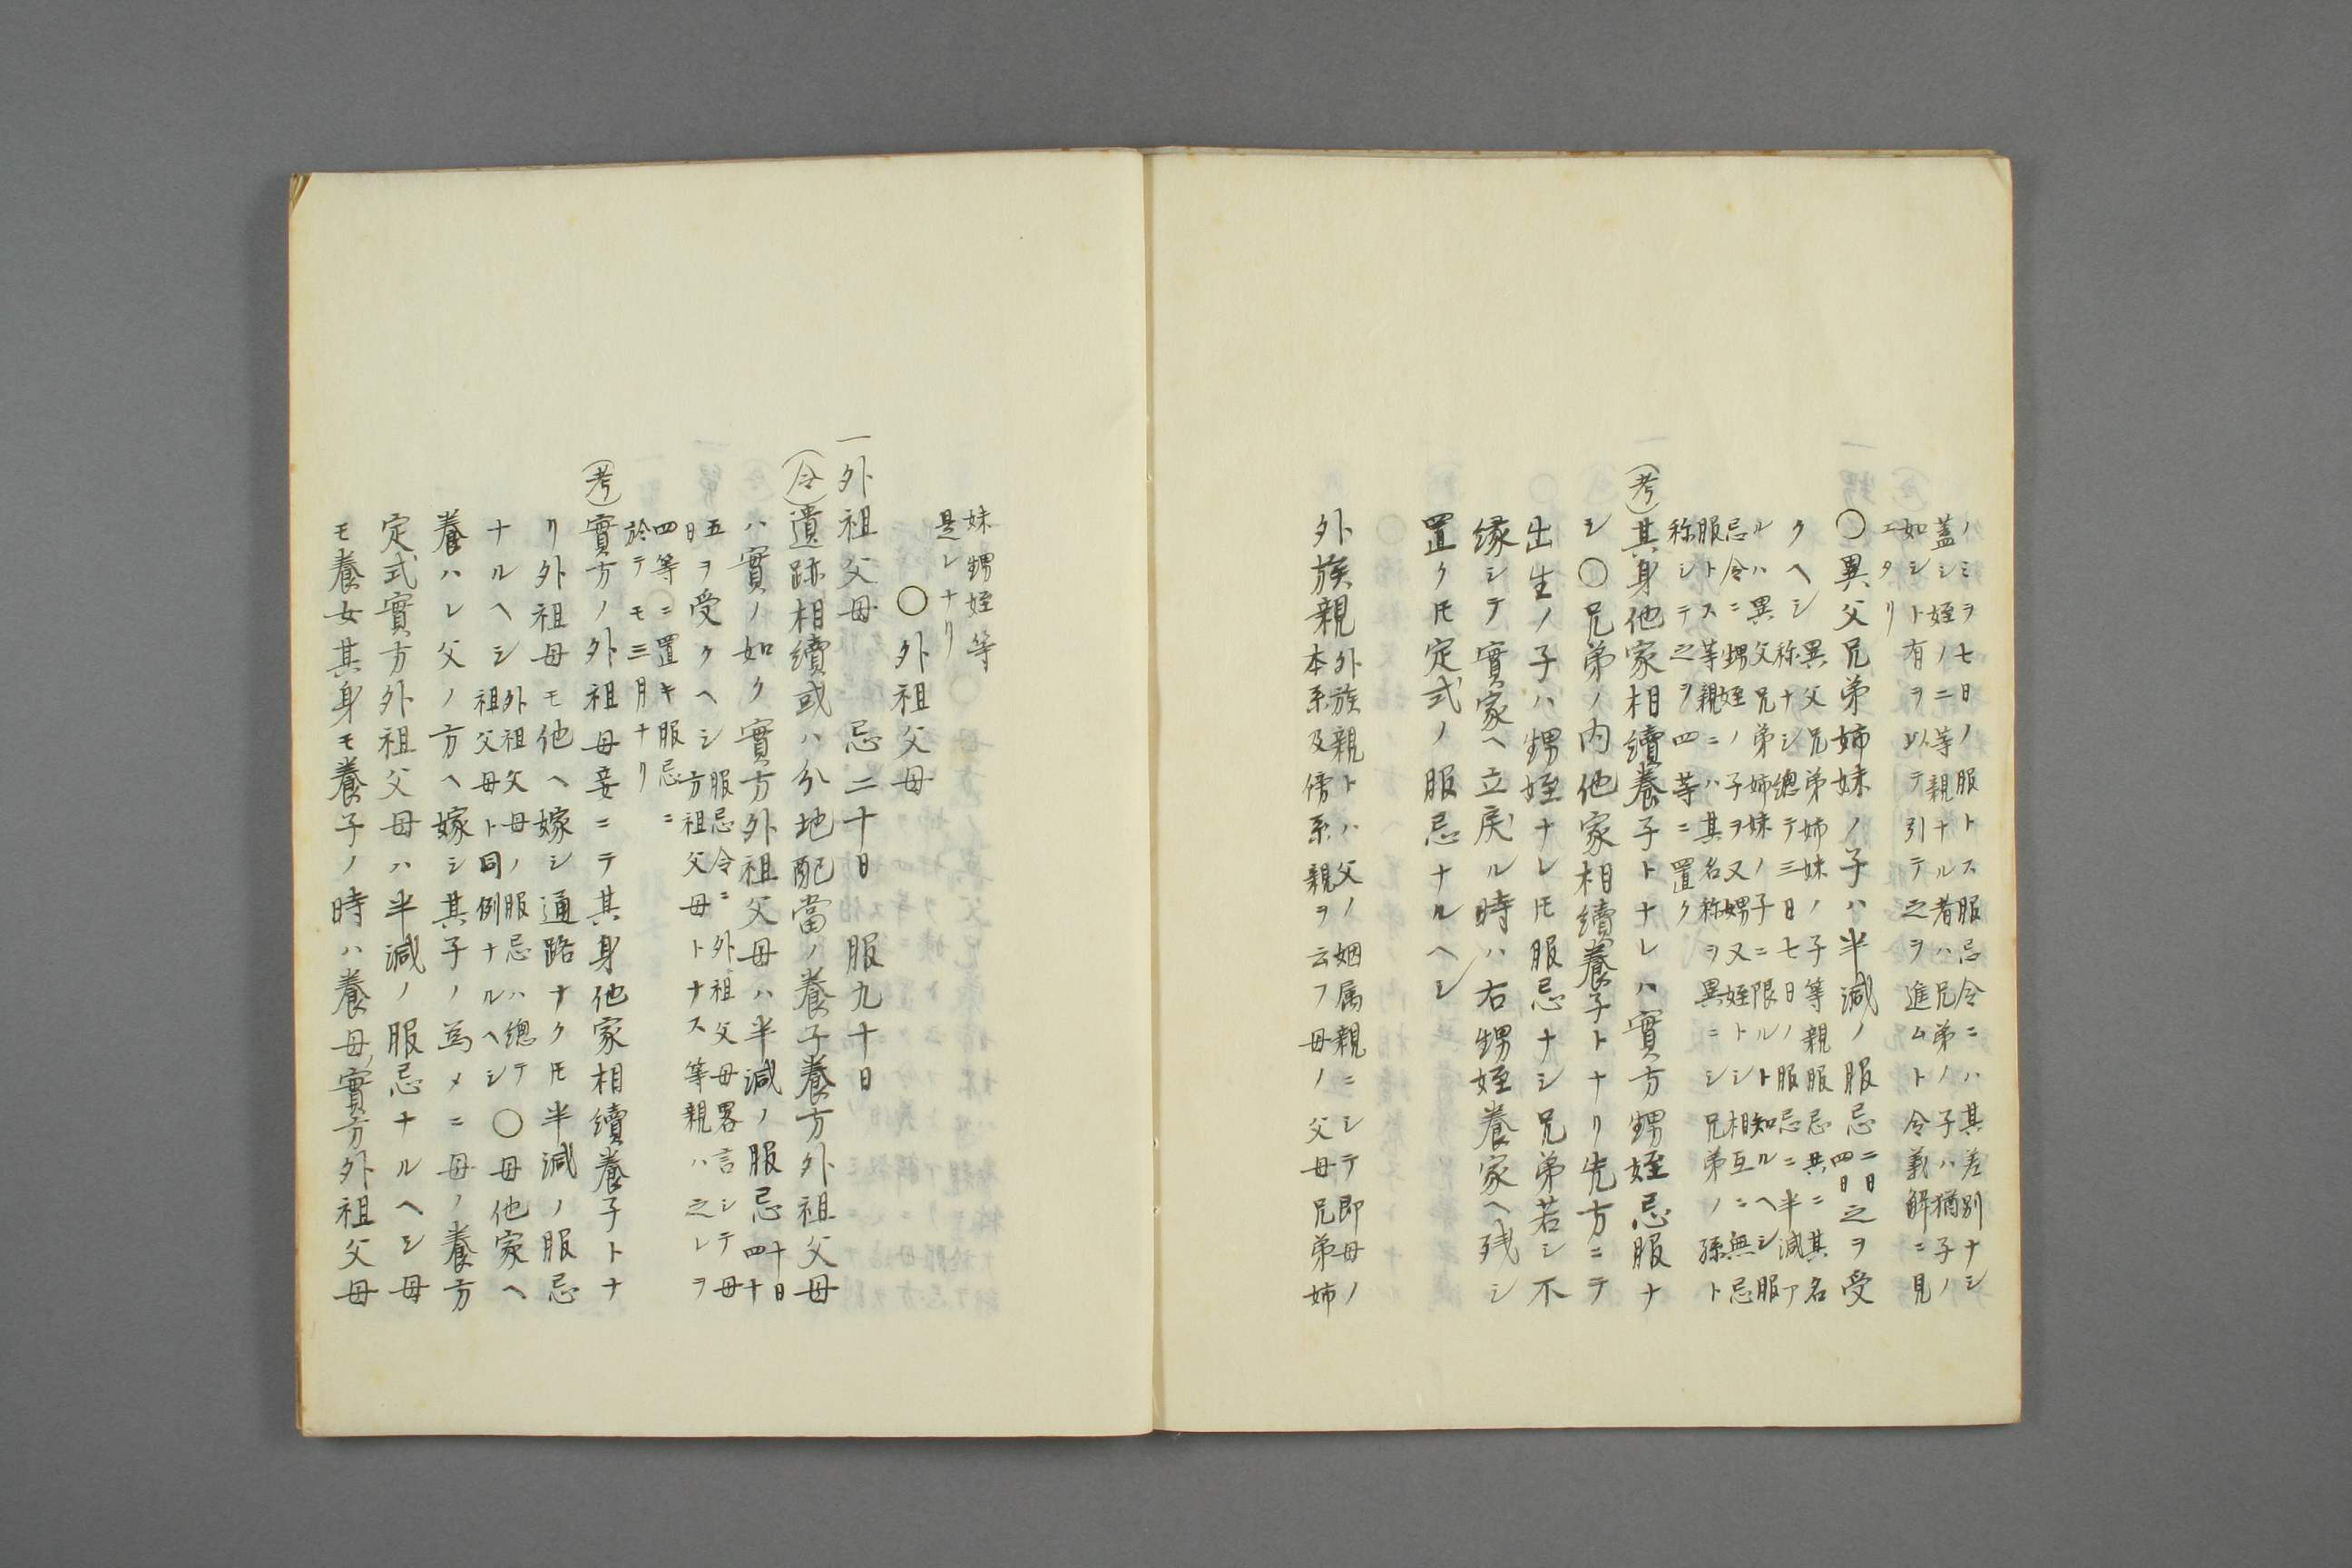 ノミヲ七日ノ服トス服忌令ニハ其差別ナシ
蓋シ姪ノ二等親ナル者ハ兄弟ノ子ハ猶子ノ
如シト有ヲ以テ引テ之ヲ進ムト令義解ニ見
エタリ
〇異父兄弟姉妹ノ子ハ半減ノ服忌二日四日之ヲ受
クヘシ異父兄弟姉妹ノ子等親服忌共ニ其名
称ナシ總テ三日七日ノ服忌ニ半減ア
ルハ異父兄弟姉妹ノ子ニ限ルト知ルヘシ服
忌令ニ甥姪ノ子ヲ又甥又姪トシ相互ニ無忌
服トス等親ニハ其名称ヲ異ニシ兄弟ノ孫ト
称シテ之ヲ四等ニ置ク
(考)其身他家相續養子トナレハ實方甥姪忌服ナ
シ〇兄弟ノ内他家相續養子トナリ先方ニテ
出生ノ子ハ甥姪ナレ𪜈服忌ナシ兄弟若シ不
縁シテ實家ヘ立戻ル時ハ右甥姪養家ヘ残シ
置ク𪜈定式ノ服忌ナルヘシ
外族親外族親トハ父ノ姻属親ニシテ即母ノ
本系及傍系親ヲ云フ母ノ父母兄弟姉
妹甥姪等
是レナリ
〇外祖父母
一外祖父母 忌二十日 服九十日
(令)遺跡相續或ハ分地配當ノ養子養方外祖父母
ハ實ノ如ク實方外祖父母ハ半減ノ服忌十日四十
五日ヲ受クヘシ服忌令ニ外祖父母畧言シテ母
方祖父母トナス等親ハ之レヲ
四等ニ置キ服忌ニ
於テモ三月ナリ
(考)實方ノ外祖母妾ニテ其身他家相續養子トナ
リ外祖母モ他ヘ嫁シ通路ナク𪜈半減ノ服忌
ナルヘシ外祖父母ノ服忌ハ總テ
祖父母ト同例ナルヘシ〇母他家ヘ
養ハレ父ノ方ヘ嫁シ其子ノ為メニ母ノ養方
定式實方外祖父母ハ半減ノ服忌ナルヘシ母
モ養女其身モ養子ノ時ハ養母ノ實方外祖父母